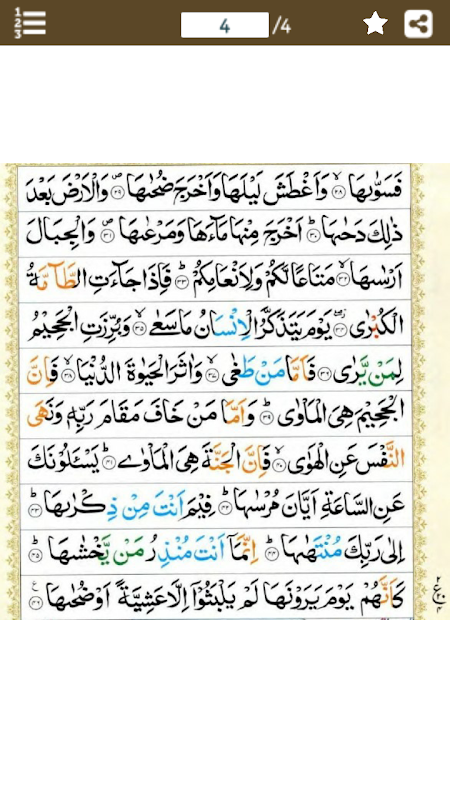 1 2 3 4 /4
فَسَوّٰىهَا ۙ﴿۲۸﴾ وَاَغْطَشَ لَيْلَهَا وَاَخْرَجَ ضُحٰىهَا ۪﴿۲۹﴾ وَالْاَرْضَ بَعْدَ
ذٰلِكَ دَحٰىهَا ؕ﴿۳۰﴾ اَخْرَجَ مِنْهَا مَآءَهَا وَمَرْعٰىهَا ۪﴿۳۱﴾ وَالْجِبَالَ
اَرْسٰىهَا ۙ﴿۳۲﴾ مَتَاعًا لَّكُمْ وَلِاَنْعَامِكُمْ ؕ﴿۳۳﴾ فَاِذَا جَآءَتِ الطَّآمَّةُ
الْكُبْرٰى ۫ۖ﴿۳۴﴾ يَوْمَ يَتَذَكَّرُ الْاِنْسَانُ مَا سَعٰى ۙ﴿۳۵﴾ وَبُرِّزَتِ الْجَحِيْمُ
لِمَنْ يَّرٰى ﴿۳۶﴾ فَاَمَّا مَنْ طَغٰى ۙ﴿۳۷﴾ وَاٰثَرَ الْحَيٰوةَ الدُّنْيَا ۙ﴿۳۸﴾ فَاِنَّ
الْجَحِيْمَ هِىَ الْمَاْوٰى ؕ﴿۳۹﴾ وَاَمَّا مَنْ خَافَ مَقَامَ رَبِّهٖ وَنَهَى
النَّفْسَ عَنِ الْهَوٰى ۙ﴿۴۰﴾ فَاِنَّ الْجَنَّةَ هِىَ الْمَاْوٰے ؕ﴿۴۱﴾ يَسْئَلُوْنَكَ
عَنِ السَّاعَةِ اَيَّانَ مُرْسٰىهَا ؕ﴿۴۲﴾ فِيْمَ اَنْتَ مِنْ ذِكْرٰىهَا ؕ﴿۴۳﴾
اِلٰى رَبِّكَ مُنْتَهٰىهَا ؕ﴿۴۴﴾ اِنَّمَآ اَنْتَ مُنْذِرُ مَنْ يَّخْشٰىهَا ؕ﴿۴۵﴾
كَاَنَّهُمْ يَوْمَ يَرَوْنَهَا لَمْ يَلْبَثُوْٓا اِلَّا عَشِيَّةً اَوْ ضُحٰىهَا ﴿۴۶﴾